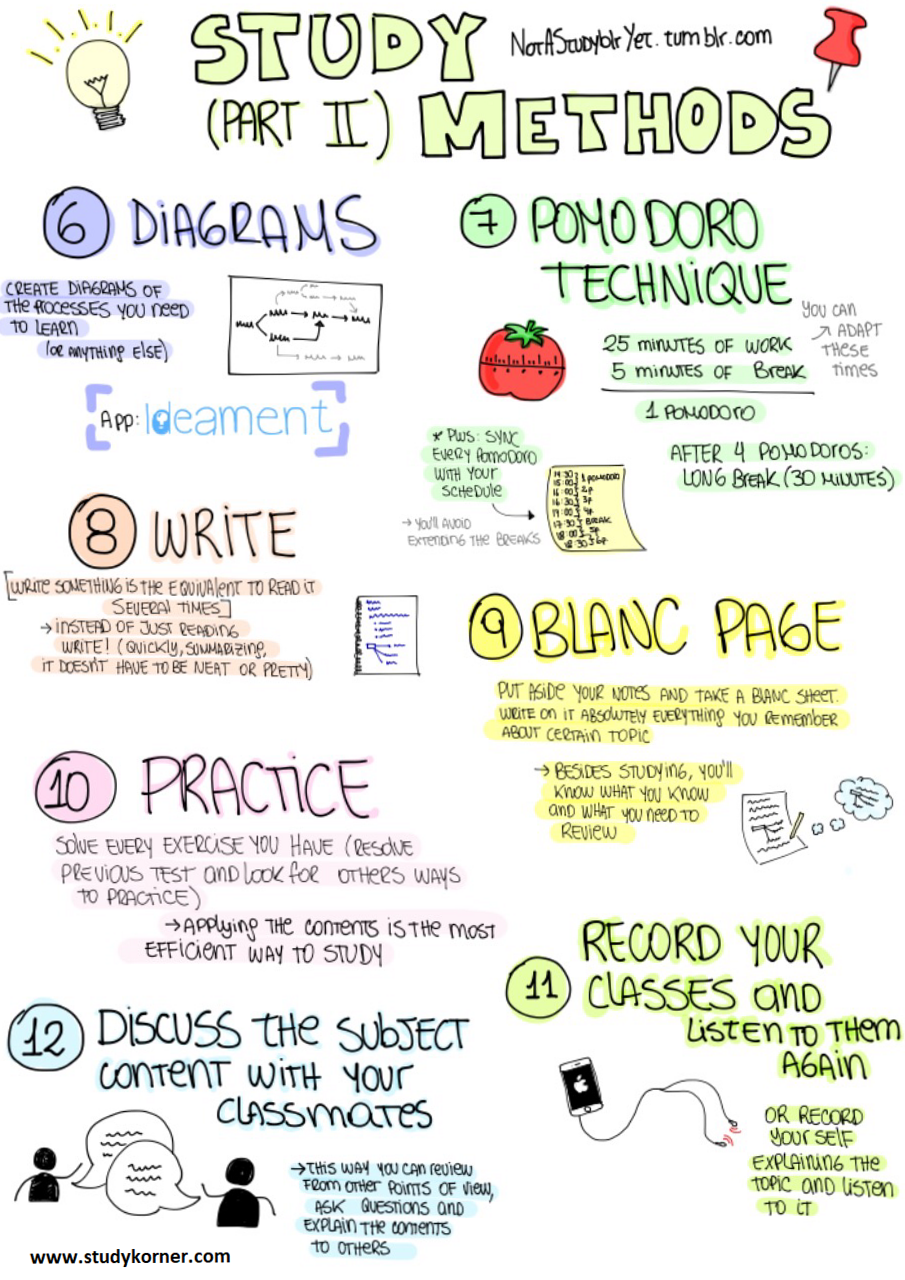 STUDY
NotAStudyblrYet.tumblr.com
(PART II) METHODS
6 DIAGRAMS
CREATE DIAGRAMS OF
THE PROCESSES YOU NEED
TO LEARN
(OR ANYTHING ELSE)
App: Ideament
7 POMODORO
TECHNIQUE
YOU CAN
ADAPT
THESE
TIMES
25 MINUTES OF WORK
5 MINUTES OF BREAK
1 POMODORO
AFTER 4 POMODOROS:
LONG BREAK (30 MINUTES)
* PLUS: SYNC
EVERY POMODORO
WITH YOUR
SCHEDULE
→ YOU'LL AVOID
EXTENDING THE BREAKS
14:30
15:00 } 1 POMODORO
16:00 } 2p
16:30 } 3p
17:00 } 4p
17:30 } BREAK
18:00 } 5p
18:30 } 6p
8 WRITE
[WRITE SOMETHING IS THE EQUIVALENT TO READ IT
SEVERAL TIMES]
→ INSTEAD OF JUST READING
WRITE! (QUICKLY, SUMMARIZING,
IT DOESN'T HAVE TO BE NEAT OR PRETTY)
9 BLANC PAGE
PUT ASIDE YOUR NOTES AND TAKE A BLANC SHEET.
WRITE ON IT ABSOLUTELY EVERYTHING YOU REMEMBER
ABOUT CERTAIN TOPIC
→ BESIDES STUDYING, YOU'LL
KNOW WHAT YOU KNOW
AND WHAT YOU NEED TO
REVIEW
10 PRACTICE
SOLVE EVERY EXERCISE YOU HAVE (RESOLVE
PREVIOUS TEST AND LOOK FOR OTHERS WAYS
TO PRACTICE)
→ APPLYING THE CONTENTS IS THE MOST
EFFICIENT WAY TO STUDY
11 RECORD YOUR
CLASSES AND
LISTEN TO THEM
AGAIN
OR RECORD
YOUR SELF
EXPLAINING THE
TOPIC AND LISTEN
TO IT
12 DISCUSS THE SUBJECT
CONTENT WITH YOUR
CLASSMATES
→ THIS WAY YOU CAN REVIEW
FROM OTHER POINTS OF VIEW,
ASK QUESTIONS AND
EXPLAIN THE CONTENTS
TO OTHERS
www.studykorner.com